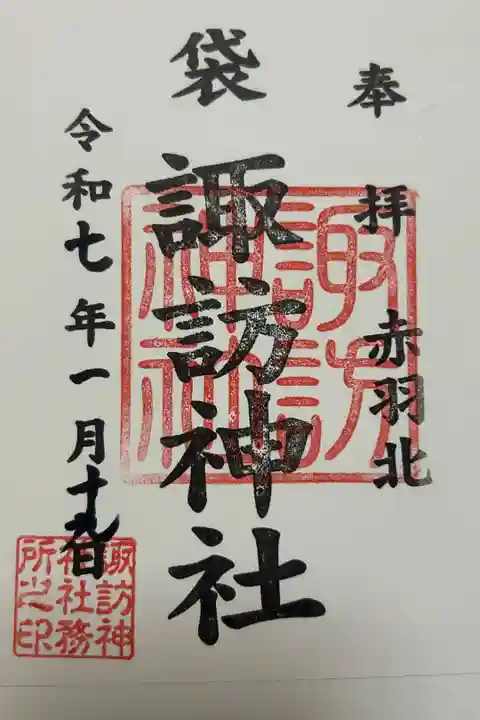 奉拝 赤羽北
袋 諏訪神社
令和七年一月十九日
諏訪神社
諏訪神社社務所之印